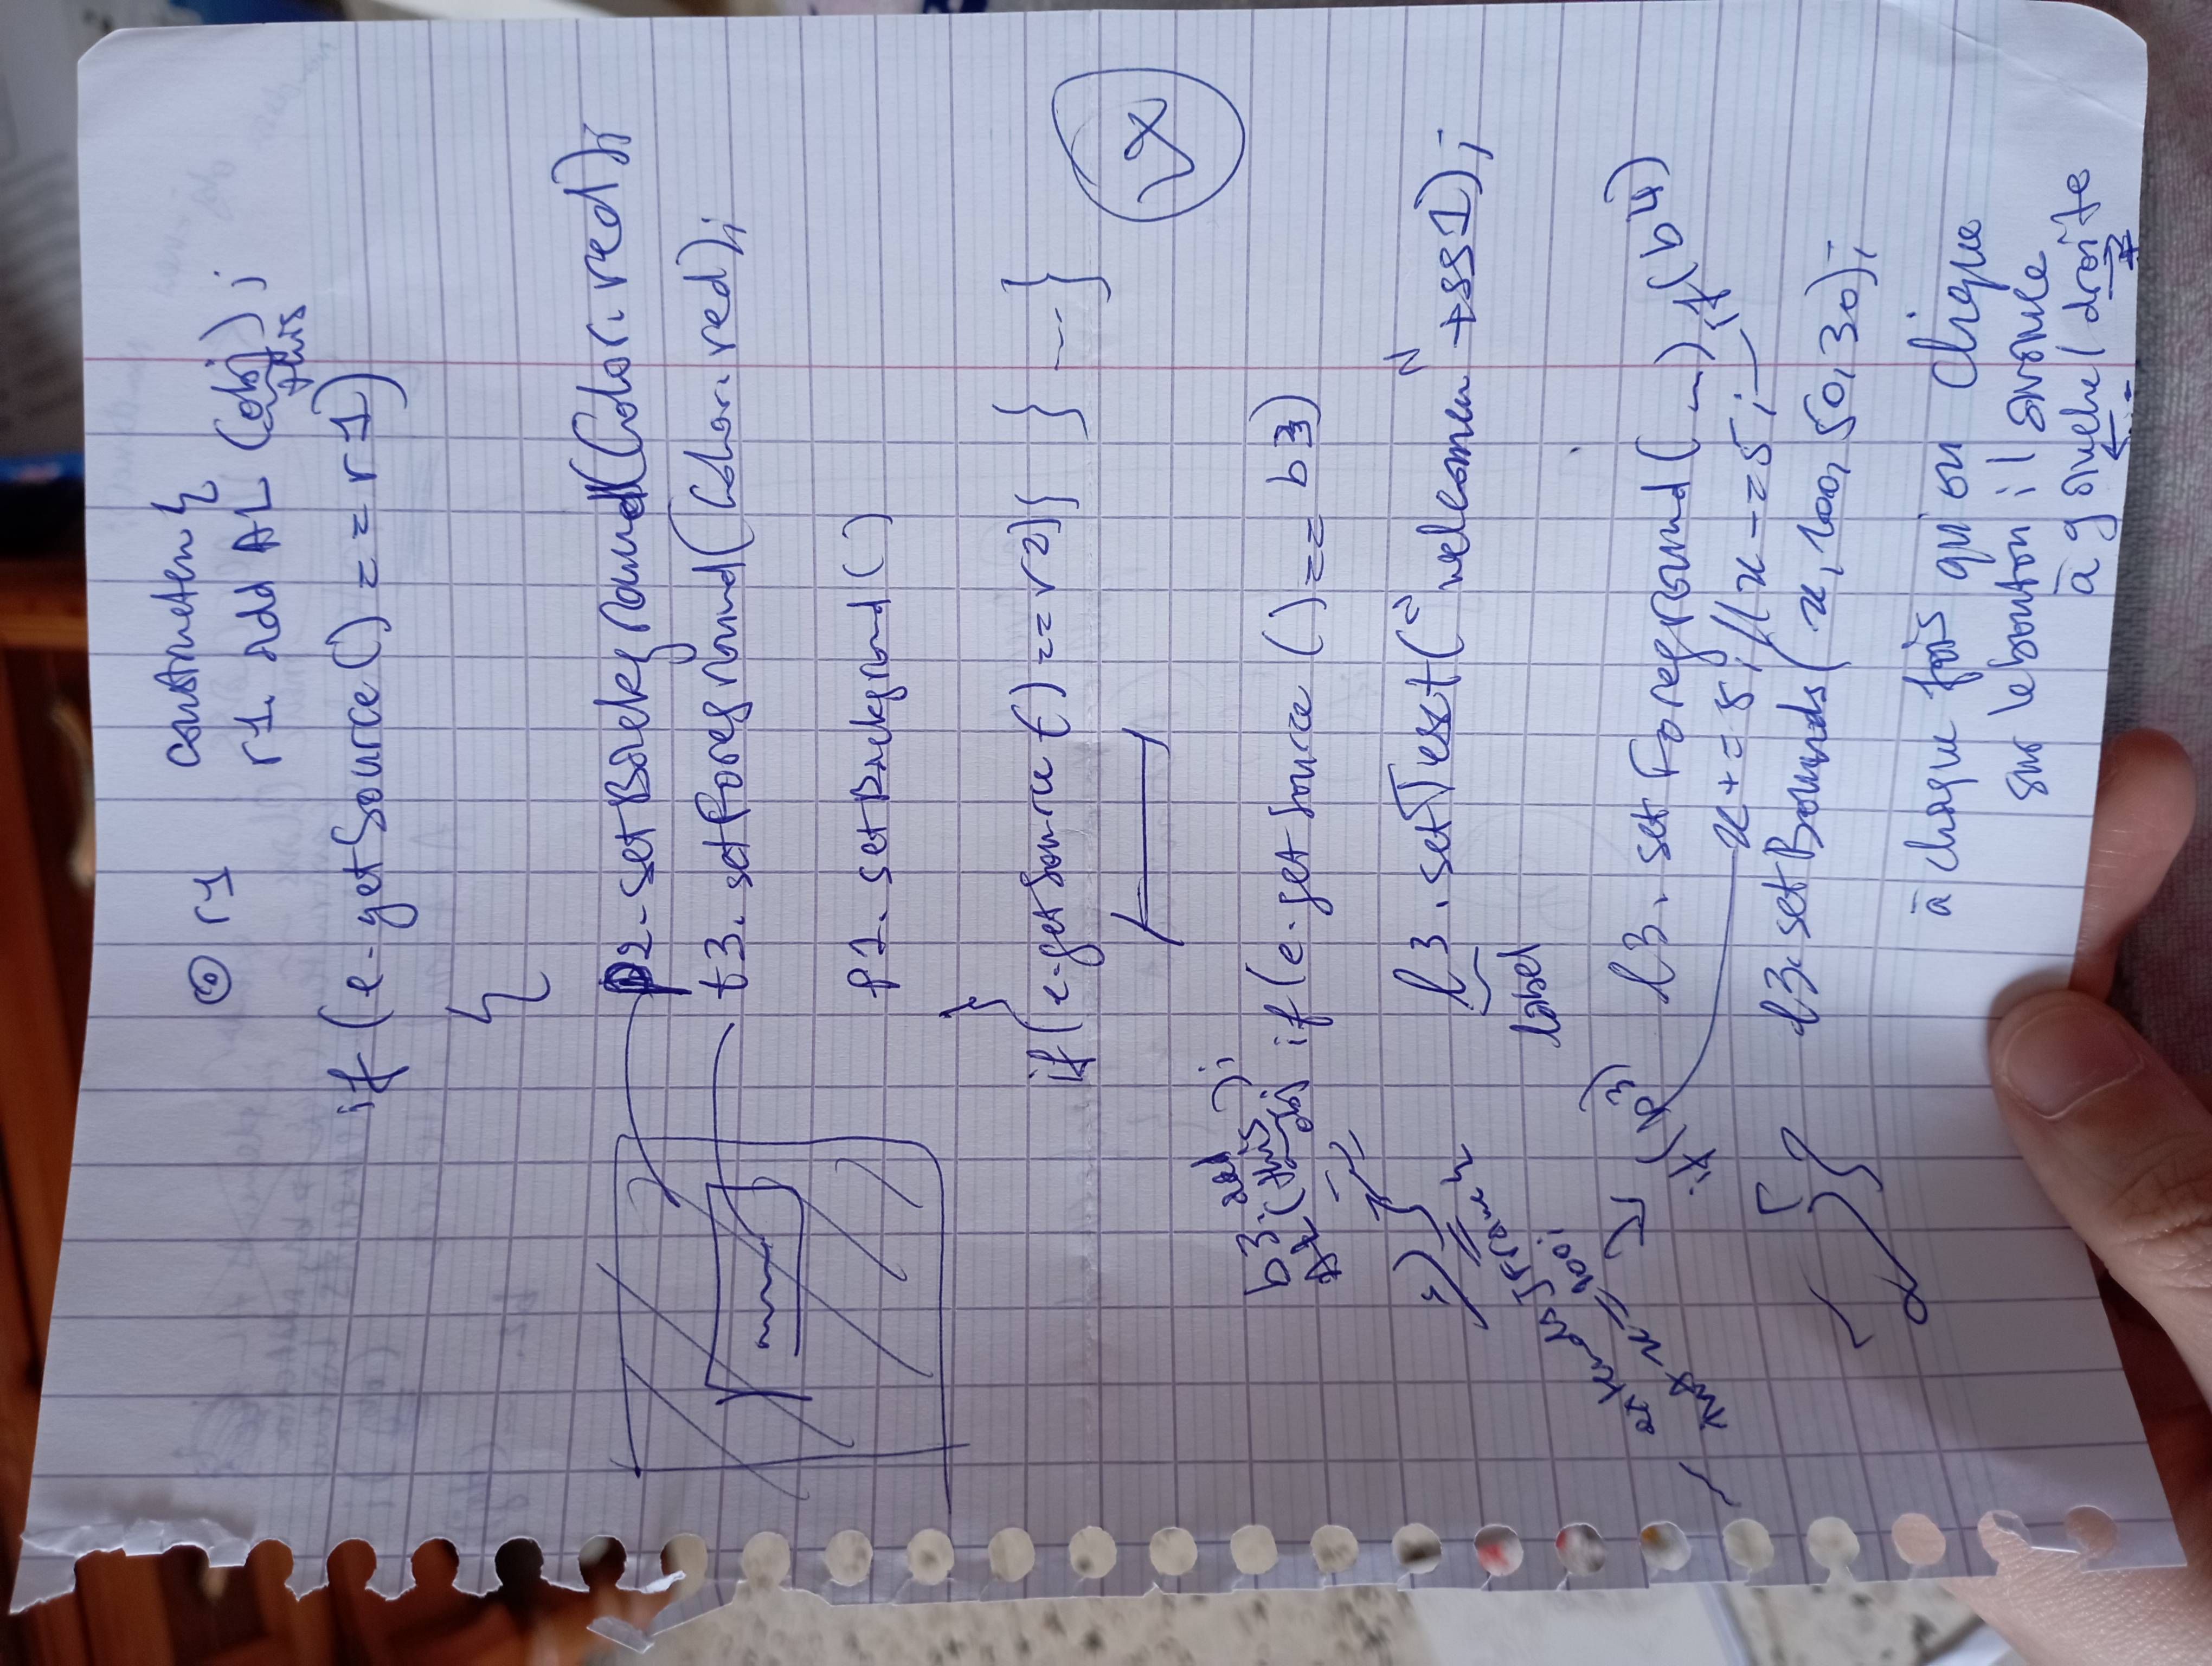 r1 constructeu {
r1. add AL (obj) ;
this
if (e.getSource() == r1)
{
p2.setBackground(Color.red);
t3.setForeground(Color.red);
p1.setBackgrond()
}
if (e.getSource () == r2) { } --- }
b3. add
AL (this) ;
obj
if (e.getSource () == b3)
l3.setText("welcomeu" +ss1);
label
extends JFrame {
int x = 100;
if (b3)
l3. setForeground( _ ) ; if (b4)
x += 5; // x -= 5;
l3.setBounds( x, 100, 50, 30);
à chaque fois qu'on clique
sur le bouton il avance
à gauche / droite
← - → +